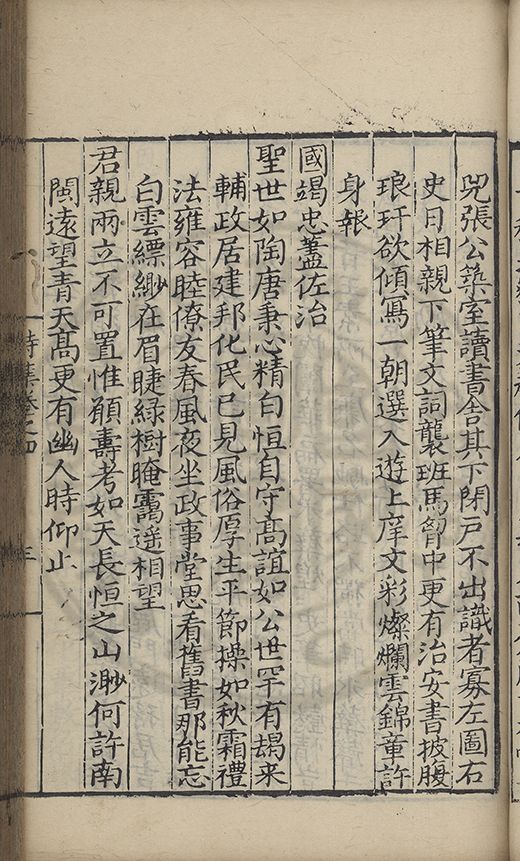 兕張公築室讀書舍其下閉戸不出識者寡左圖右
史日相親下筆文詞襲班馬智中更有治安書披腹
琅玕欲傾寫一朝選入遊上庠文彩燦爛雲錦章許
身報
國竭忠藎佐治
聖世如陶唐秉心精白恒自守高誼如公世罕有朅来
輔政居建邦化民已見風俗厚生平節操如秋霜禮
法雍容睦僚友春風夜坐政事堂思看舊書那能忘
白雲縹緲在眉睫綠樹晻靄遥相望
君親兩立不可置惟願壽考如天長恒之山渺何許南
閩遠望青天髙更有幽人時仰止
詩集卷之四
三